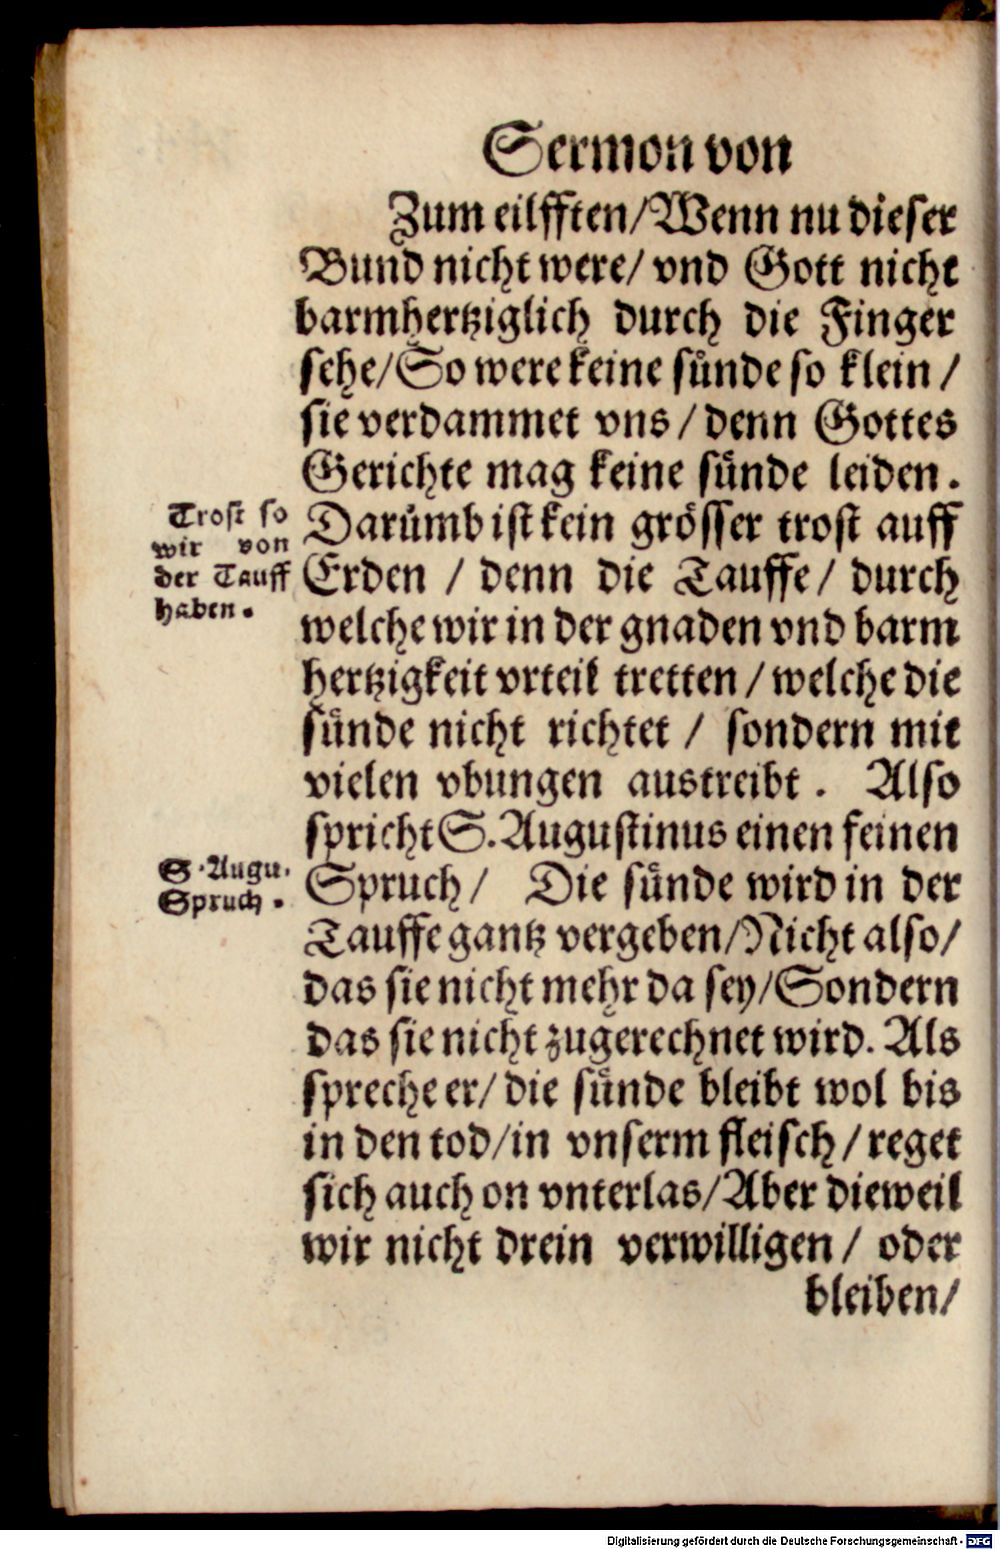 Sermon von
Zum eilfften/Wenn nu dieser
Bund nicht were/ vnd Gott nicht
barmhertziglich durch die Finger
sehe/So were keine sünde so klein /
sie verdammet vns / denn Gottes
Gerichte mag keine sünde leiden.
Trost so
wir von
der Tauff
haben.
Darümb ist kein grösser trost auff
Erden / denn die Tauffe/ durch
welche wir in der gnaden vnd barm
hertzigkeit vrteil tretten / welche die
sünde nicht richtet / sondern mit
vielen vbungen austreibt. Also
spricht S. Augustinus einen feinen
S. Augu.
Spruch.
Spruch/ Die sünde wird in der
Tauffe gantz vergeben/Nicht also/
das sie nicht mehr da sey/Sondern
das sie nicht zugerechnet wird. Als
spreche er/ die sünde bleibt wol bis
in den tod/in vnserm fleisch / reget
sich auch on vnterlas/Aber dieweil
wir nicht drein verwilligen / oder
bleiben/
Digitalisierung gefördert durch die Deutsche Forschungsgemeinschaft - DFG